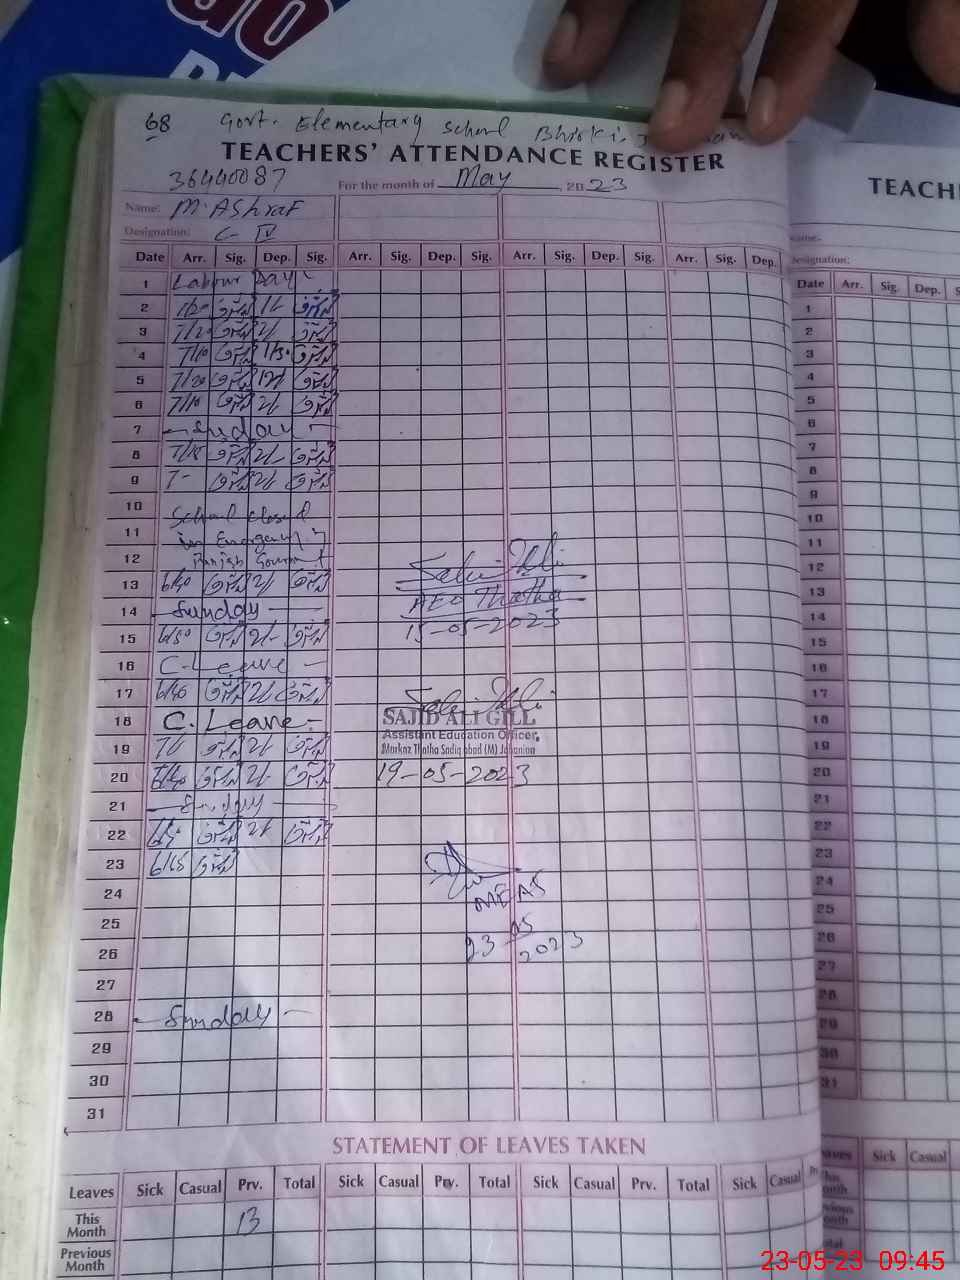 68 Govt. Elementary School
TEACHERS' ATTENDANCE REGISTER
36440087 For the month of May, 2023
Name: M. Ashraf
Designation: C-IV
Date Arr. Sig. Dep. Sig. Arr. Sig. Dep. Sig. Arr. Sig. Dep. Sig. Arr. Sig. Dep.
1 Labour Day
2 7/20
3 7/20 2/
4 7/10 1/30
5 7/20 12/
6 7/10 2/
7 Sunday
8 7/15 2/
9 7- 2/
10 School closed
11 in Emergency by
12 Punjab Government
13 6/50 2/
AEO Thatha
14 Sunday
15-05-2023
15 6/50 2/
16 C. Leave
17 6/50 2/
18 C. Leave
SAJID ALI GILL
Assistant Education Officer,
Markaz Thatha Sadiq abad (M) Jahanian
19 7/ 2/
20 6/50 2/ 19-05-2023
21 Sunday
22 2/
23 6/55
24
MEAS
25
23-05-2023
26
27
28 Sunday
29
30
31
STATEMENT OF LEAVES TAKEN
Leaves Sick Casual Prv. Total Sick Casual Prv. Total Sick Casual Prv. Total Sick Casual
This Month 13
Previous Month
TEACH
Designation:
Date Arr. Sig. Dep.
1
2
3
4
5
6
7
8
9
10
11
12
13
14
15
16
17
18
19
20
21
22
23
24
25
26
27
28
29
30
31
Sick Casual
23-05-23 09:45